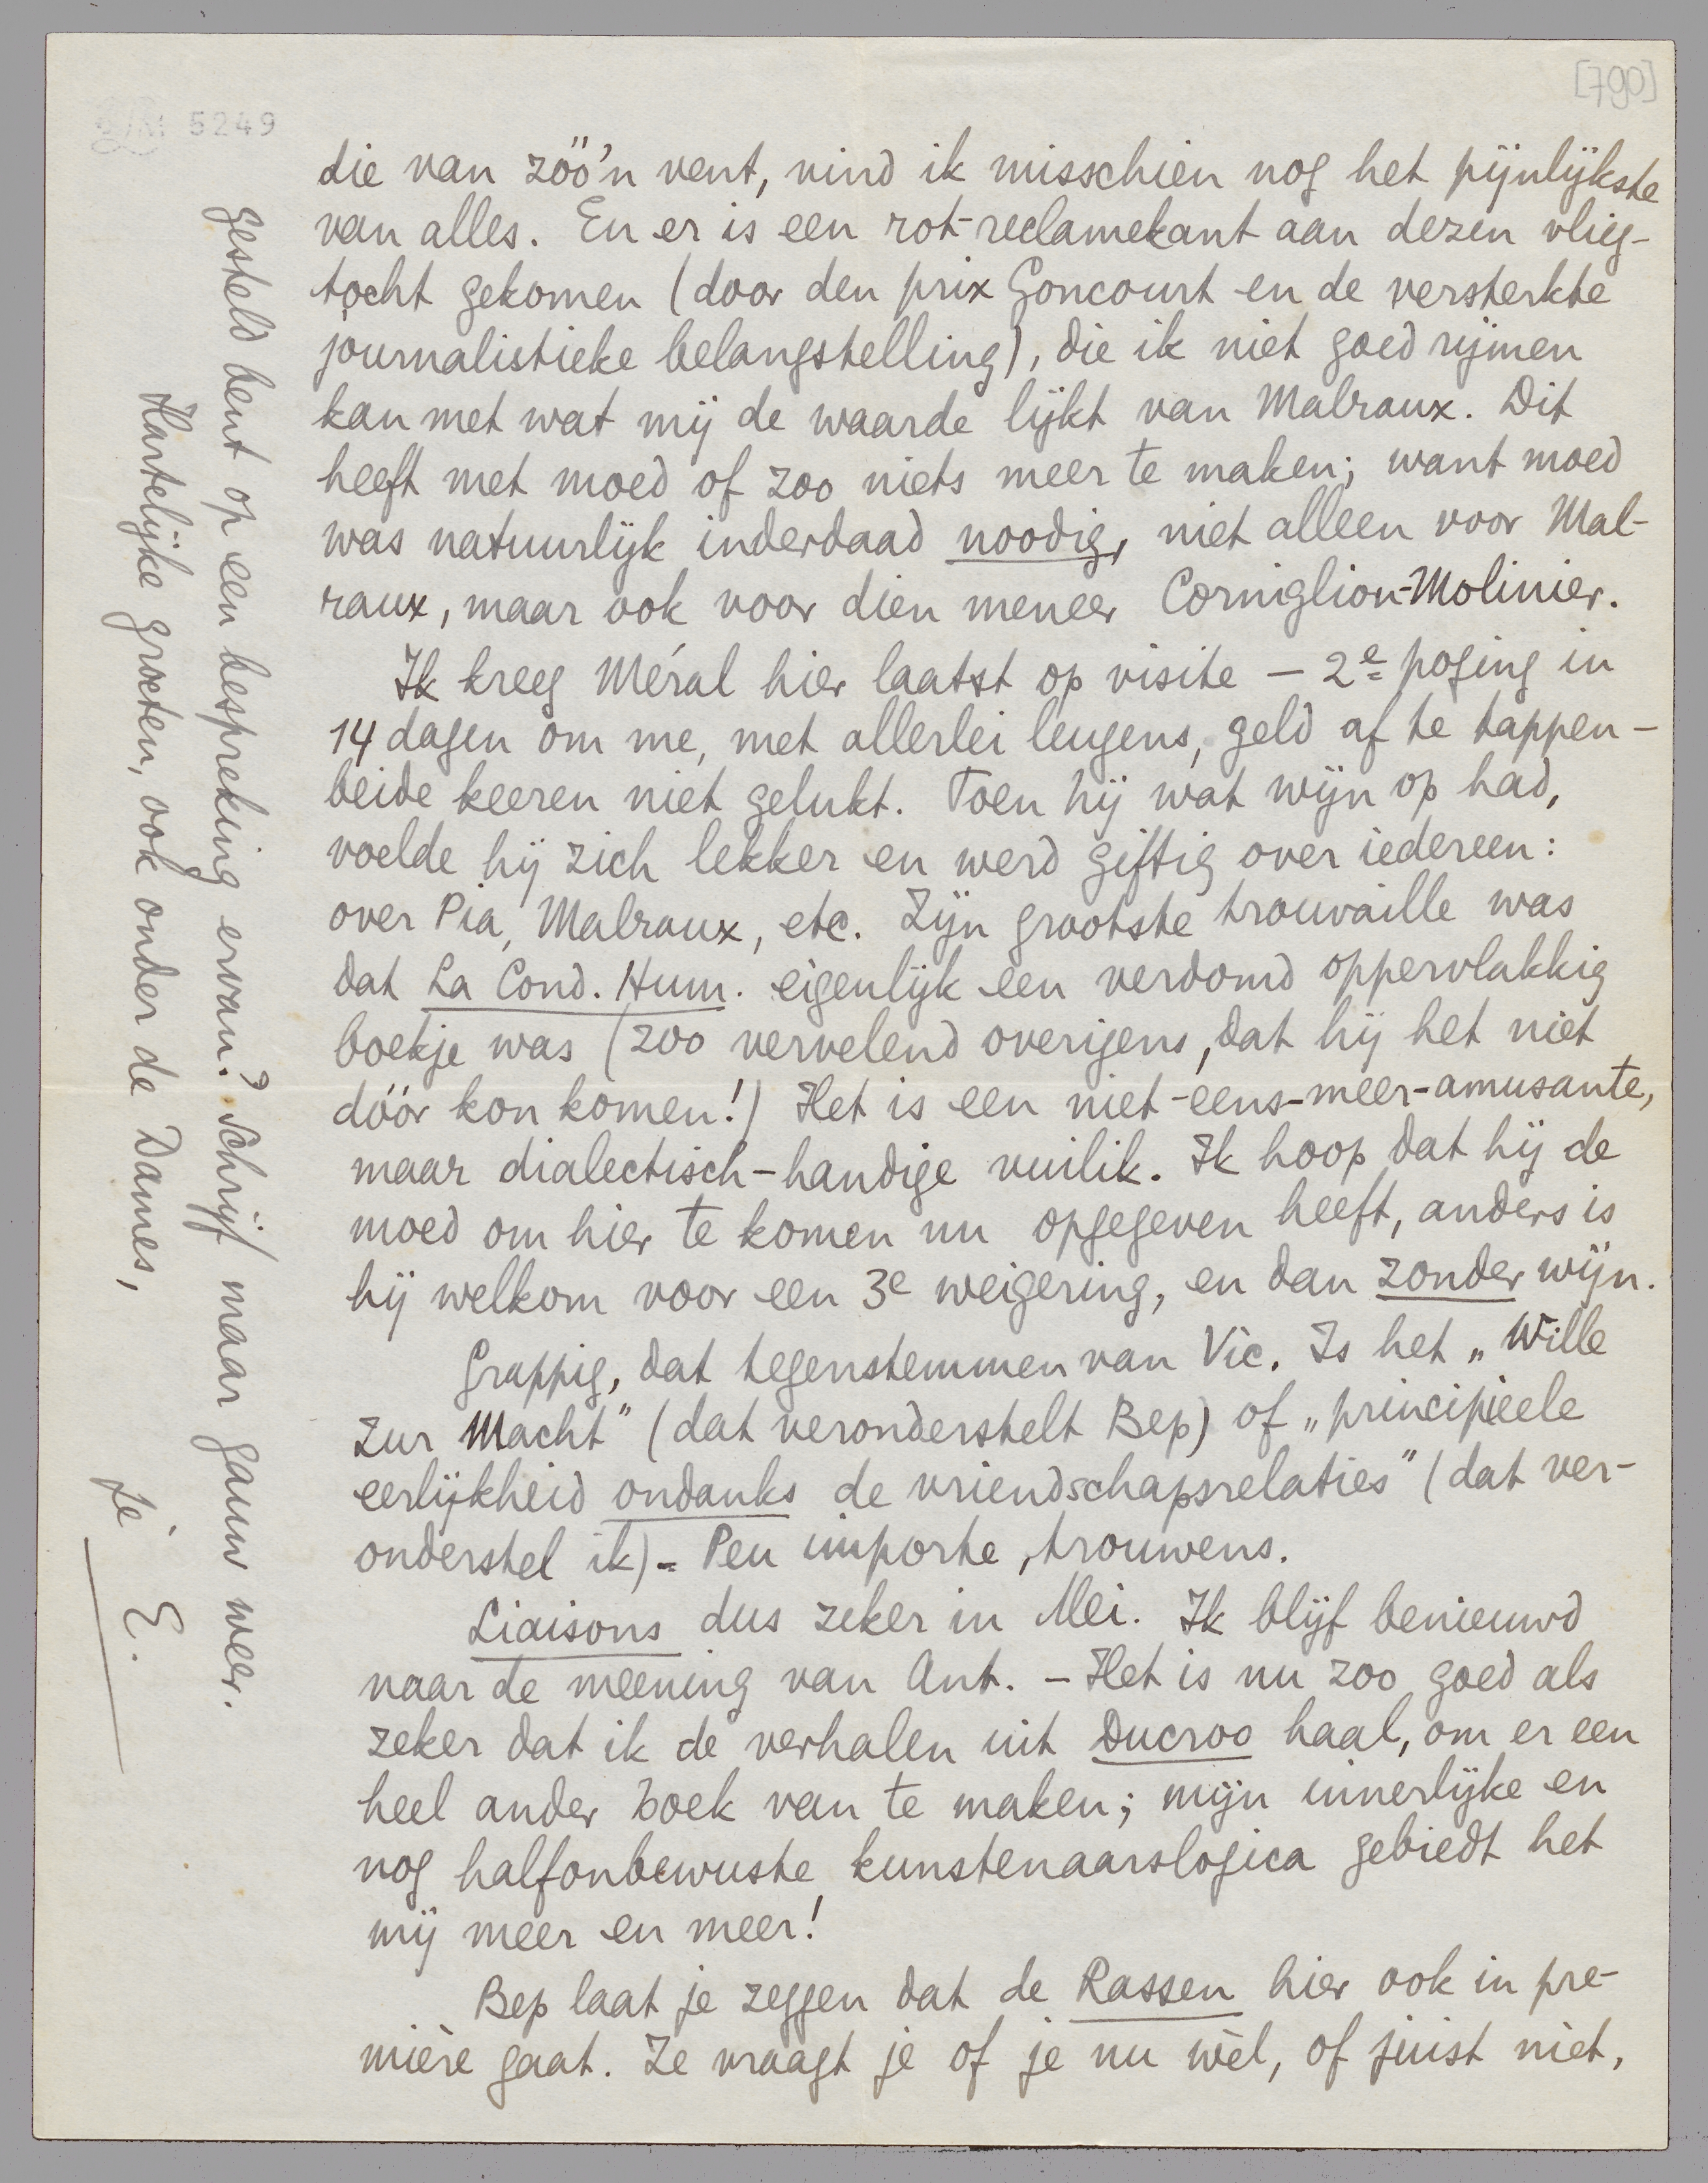 [790]
5249
die van zóó'n vent, vind ik misschien nog het pijnlijkste
van alles. En er is een rot-reclamekant aan dezen vlieg-
tocht gekomen (door den prix Goncourt en de versterkte
journalistieke belangstelling), die ik niet goed rijmen
kan met wat mij de waarde lijkt van Malraux. Dit
heeft met moed of zoo niets meer te maken; want moed
was natuurlijk inderdaad noodig, niet alleen voor Mal-
raux, maar ook voor dien meneer Corniglion-Molinier.
Ik kreeg Méral hier laatst op visite – 2e poging in
14 dagen om me, met allerlei leugens, geld af te tappen –
beide keeren niet gelukt. Toen hij wat wijn op had,
voelde hij zich lekker en werd giftig over iedereen:
over Pia, Malraux, etc. Zijn grootste trouvaille was
dat La Cond. Hum. eigenlijk een verdomd oppervlakkig
boekje was (zoo vervelend overigens, dat hij het niet
dóór kon komen!) Het is een niet-eens-meer-amusante,
maar dialectisch-handige vuilik. Ik hoop dat hij de
moed om hier te komen nu opgegeven heeft, anders is
hij welkom voor een 3e weigering, en dan zonder wijn.
Grappig, dat tegenstemmen van Vic. Is het „Wille
zur Macht" (dat veronderstelt Bep) of „principieele
eerlijkheid ondanks de vriendschapsrelaties" (dat ver-
onderstel ik) – Peu importe, trouwens.
Liaisons dus zeker in Mei. Ik blijf benieuwd
naar de meening van Ant. – Het is nu zoo goed als
zeker dat ik de verhalen uit Ducroo haal, om er een
heel ander boek van te maken; mijn innerlijke en
nog halfonbewuste kunstenaarslogica gebiedt het
mij meer en meer!
Bep laat je zeggen dat de Rassen hier ook in pre-
mière gaat. Ze vraagt je of je nu wèl, of juist niét,
gesteld bent op een bespreking ervan? Schrijf maar gauw weer.
Hartelijke groeten, ook onder de Dames,
je E.